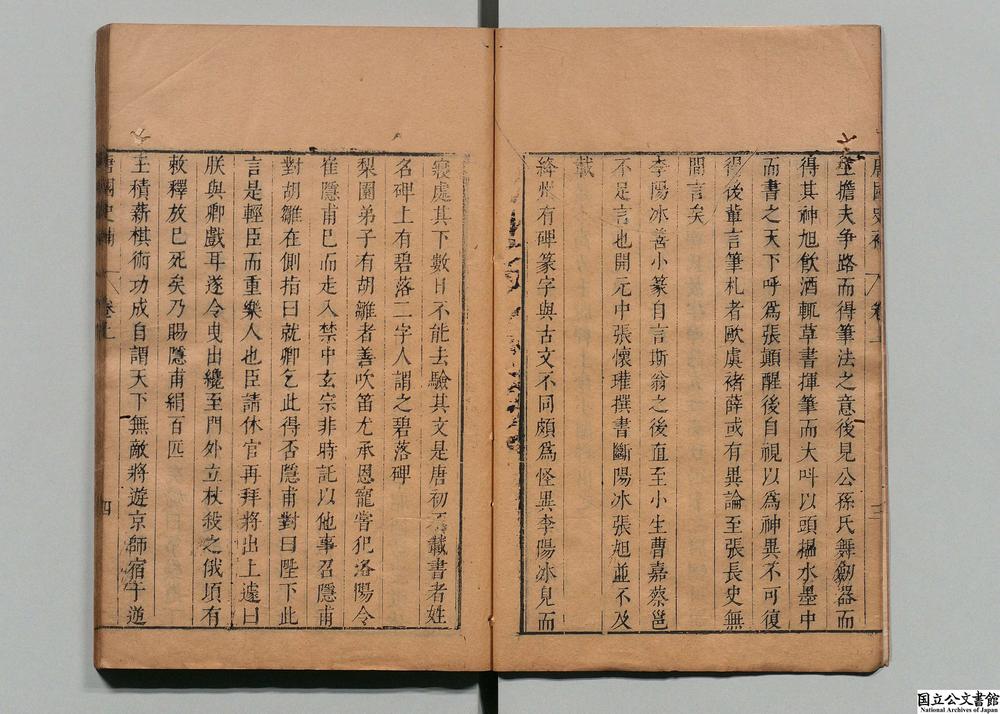 唐國史補 卷上 三
主擔夫争路而得筆法之意後見公孫氏舞劒器而
得其神旭飲酒輒草書揮筆而大呌以頭揾水墨中
而書之天下呼爲張顛醒後自視以爲神異不可復
得後輩言筆札者歐虞褚薛或有異論至張長史無
間言矣
李陽冰善小篆自言斯翁之後直至小生曹嘉蔡邕
不足言也開元中張懷瓘撰書斷陽冰張旭並不及
載
絳州有碑篆字與古文不同頗爲怪異李陽冰見而
寢處其下數日不能去驗其文是唐初不載書者姓
名碑上有碧落二字人謂之碧落碑
梨園弟子有胡雛者善吹笛尤承恩寵甞犯洛陽令
崔隱甫巳而走入禁中玄宗非時託以他事召隱甫
對胡雛在側指曰就卿乞此得否隱甫對曰陛下此
言是輕臣而重樂人也臣請休官再拜將出上遽曰
朕與卿戲耳遂令曳出纔至門外立杖殺之俄頃有
敕釋放巳死矣乃賜隱甫絹百匹
王積薪棋術功成自謂天下無敵將遊京師宿于逆
唐國史補 卷上 四
国立公文書館
National Archives of Japan